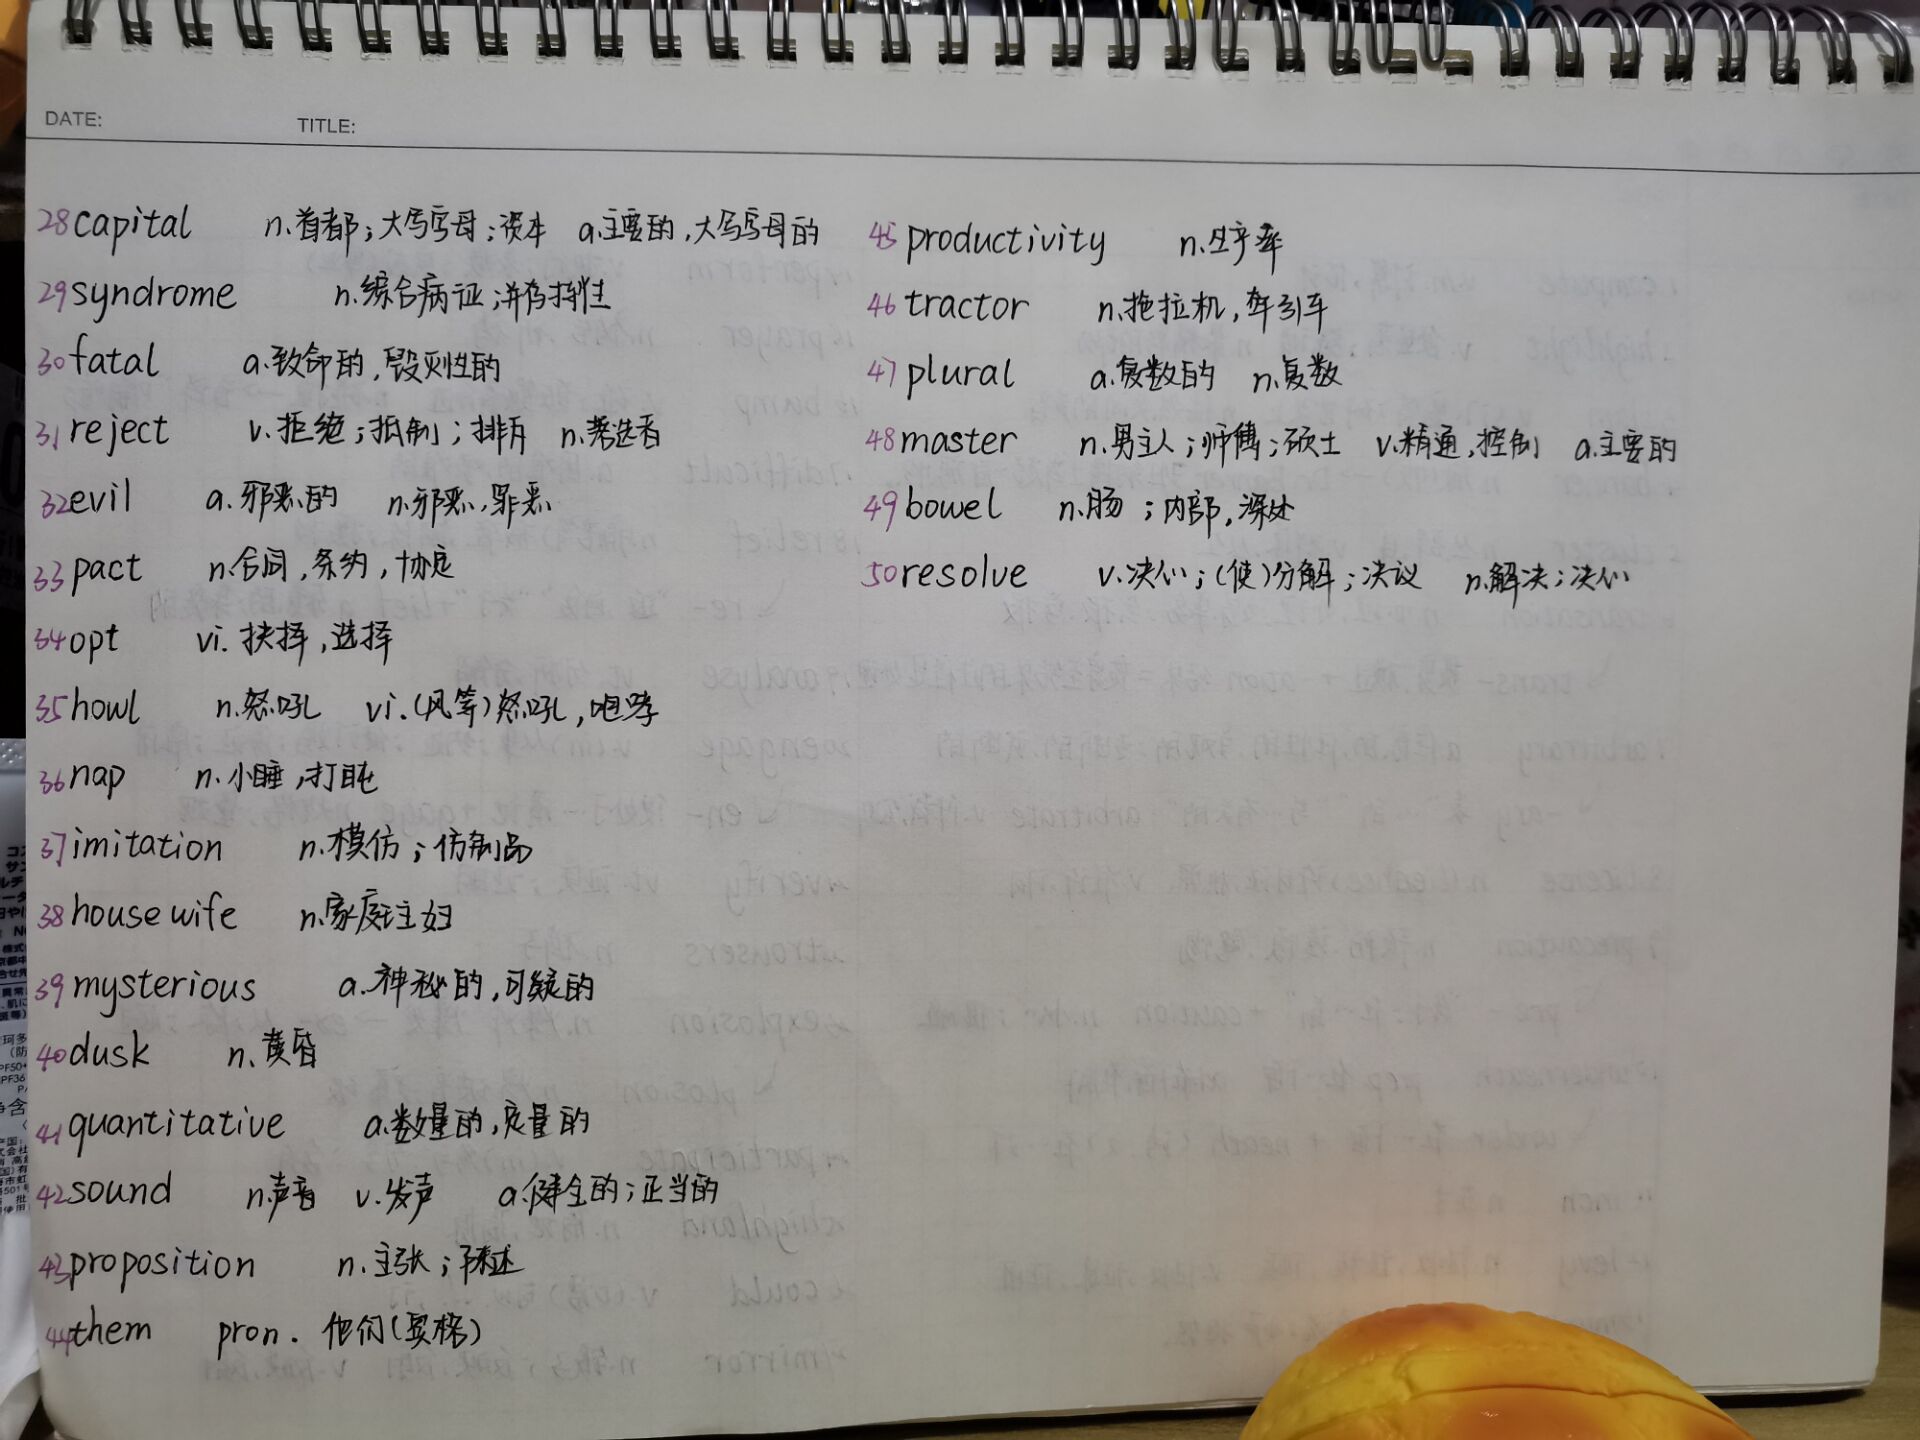 DATE: TITLE:
28 capital n.首都;大写字母;资本 a.主要的,大写字母的
29 syndrome n.综合病证;并存特性
30 fatal a.致命的,毁灭性的
31 reject v.拒绝;抵制;排斥 n.落选者
32 evil a.邪恶的 n.邪恶,罪恶
33 pact n.合同,条约,协定
34 opt vi.抉择,选择
35 howl n.怒吼 vi.(风等)怒吼,咆哮
36 nap n.小睡,打盹
37 imitation n.模仿;仿制品
38 housewife n.家庭主妇
39 mysterious a.神秘的,可疑的
40 dusk n.黄昏
41 quantitative a.数量的,定量的
42 sound n.声音 v.发声 a.健全的;正当的
43 proposition n.主张;陈述
44 them pron.他们(宾格)
45 productivity n.生产率
46 tractor n.拖拉机,牵引车
47 plural a.复数的 n.复数
48 master n.男主人;师傅;硕士 v.精通,控制 a.主要的
49 bowel n.肠;内部,深处
50 resolve v.决心;(使)分解;决议 n.解决;决心